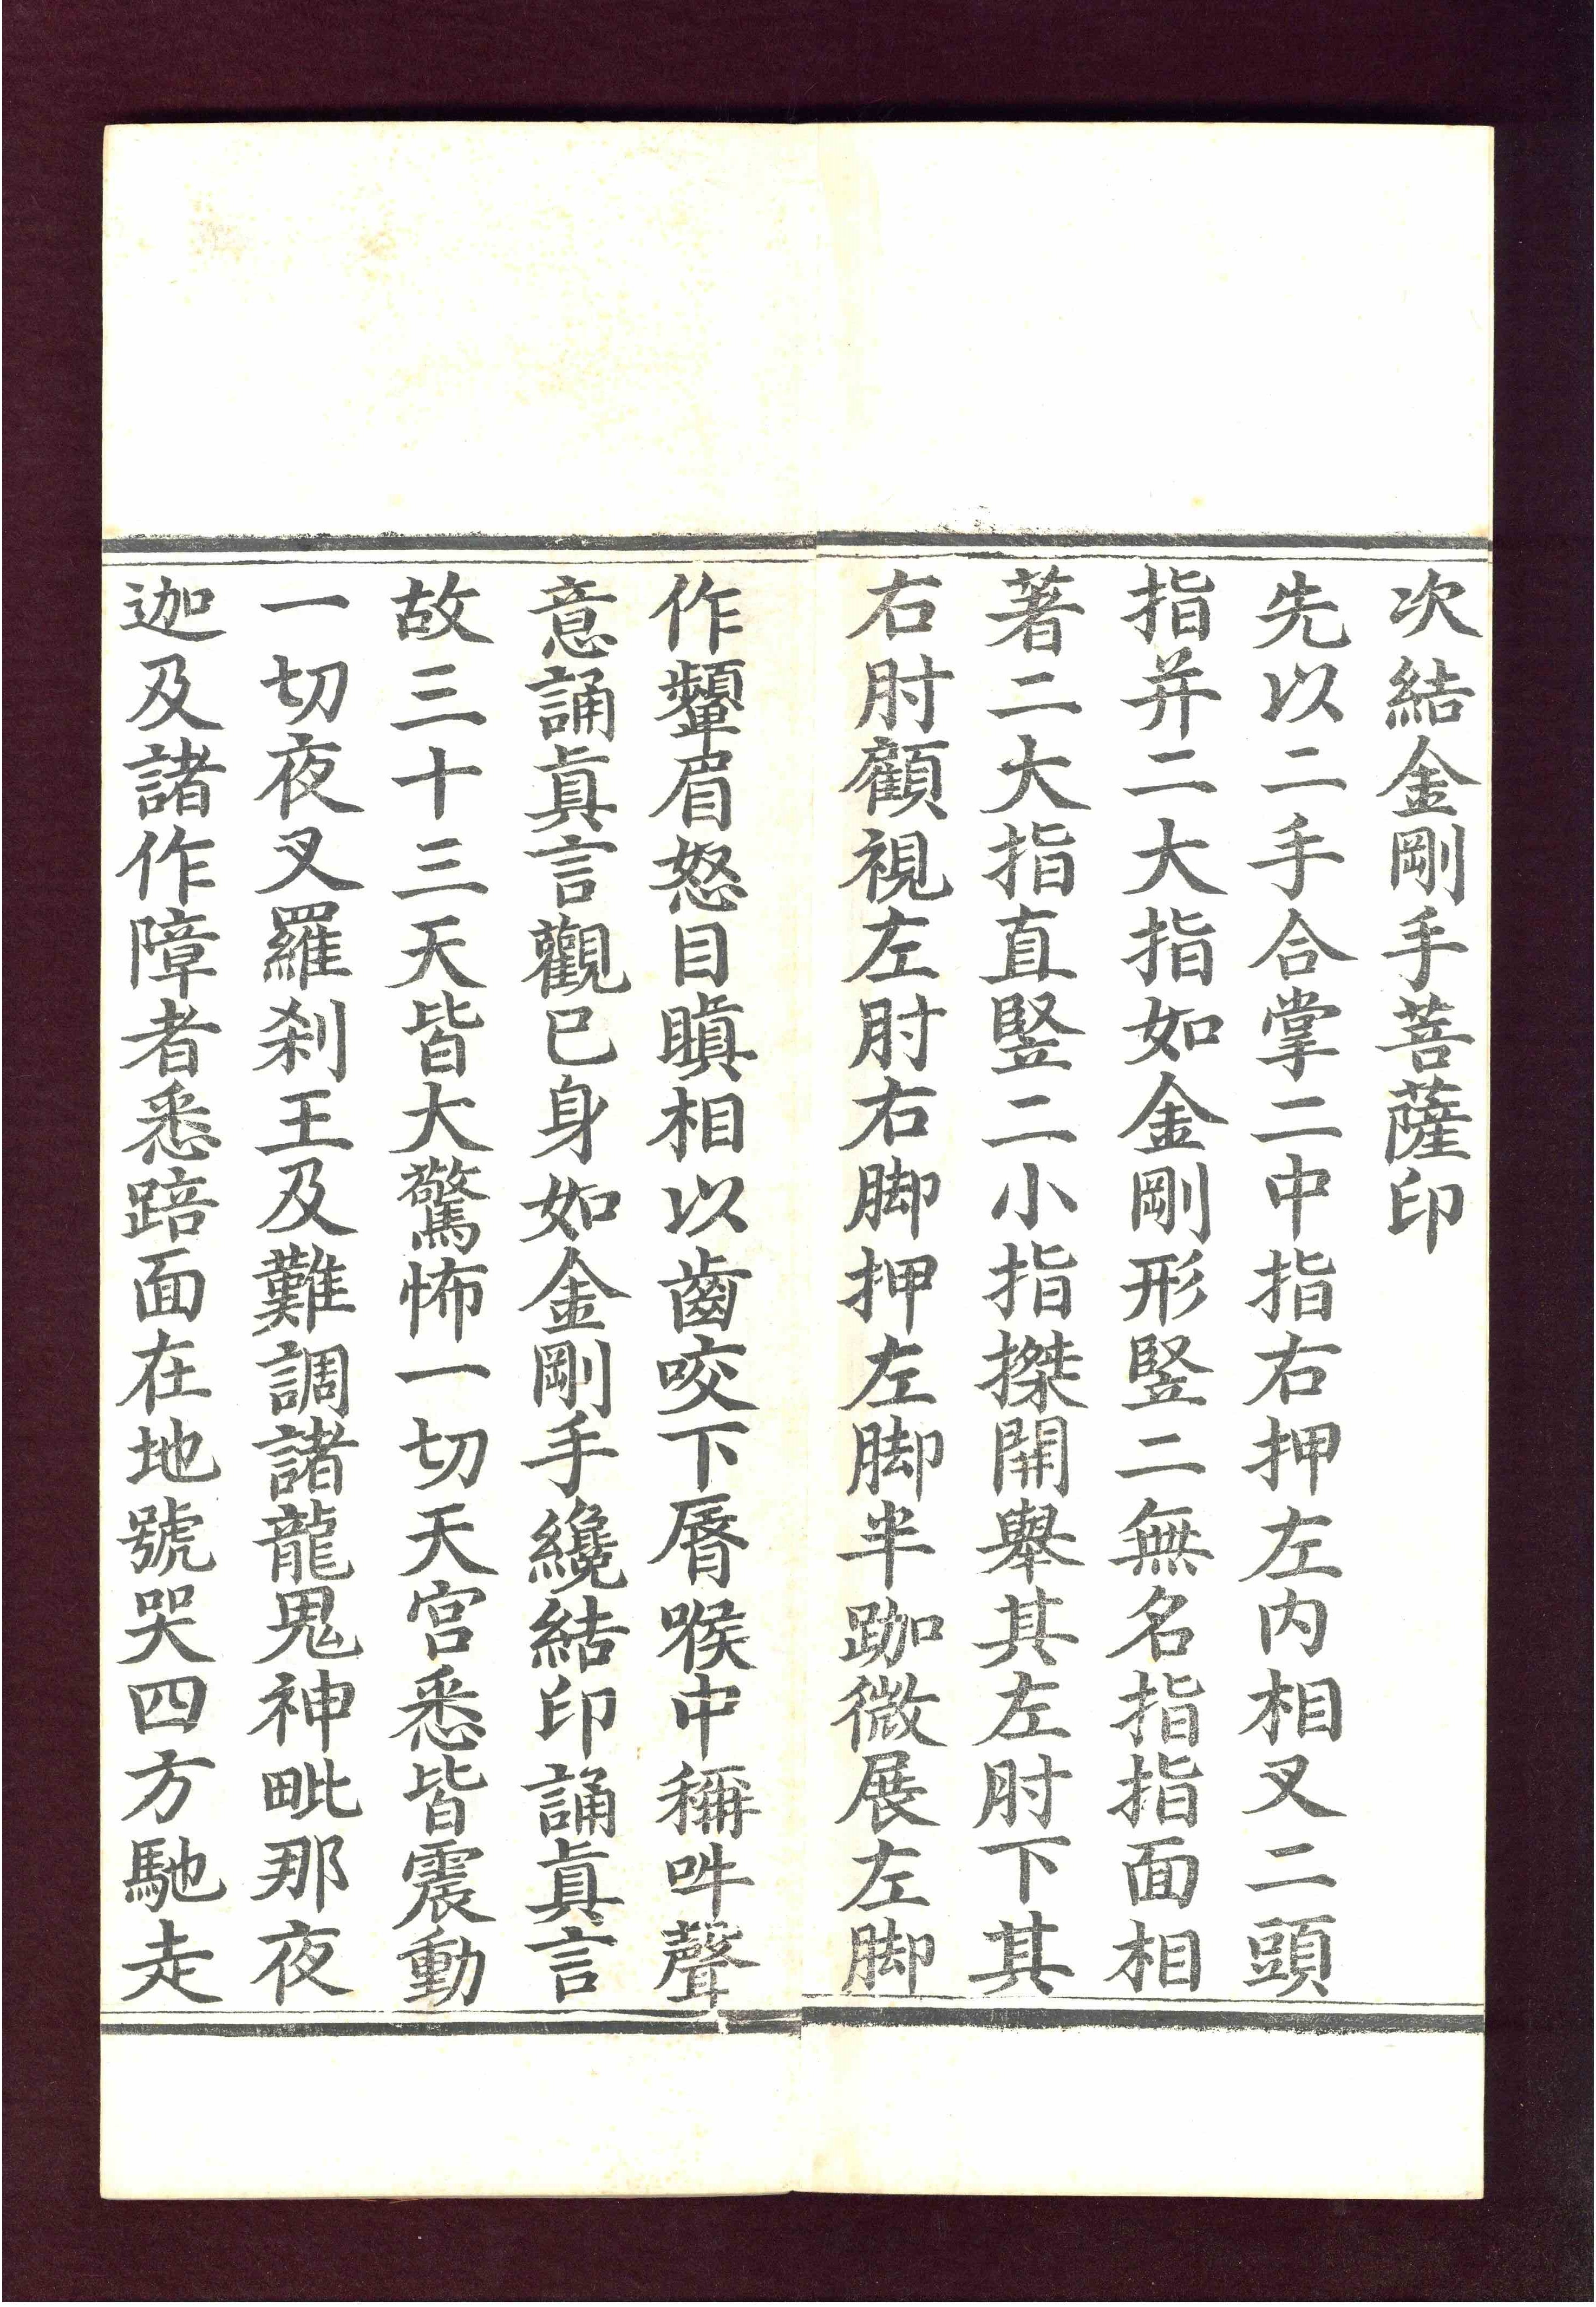 次結金剛手菩薩印
先以二手合掌二中指右押左内相叉二頭
指并二大指如金剛形竪二無名指指面相
著二大指直竪二小指搩開舉其左肘下其
右肘顧視左肘右脚押左脚半跏微展左脚
作顰眉怒目瞋相以齒咬下脣喉中稱吽聲
意誦眞言觀已身如金剛手纔結印誦眞言
故三十三天皆大驚怖一切天宮悉皆震動
一切夜叉羅刹王及難調諸龍鬼神毗那夜
迦及諸作障者悉踣面在地號哭四方馳走